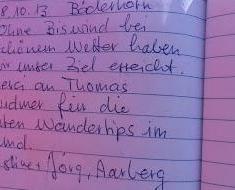 8.10.13 Bäderhorn
Ohne Biswind bei
schönem Wetter haben
wir unser Ziel erreicht.
Merci an Thomas
für die
Wandertips im
Jörg, Aarberg